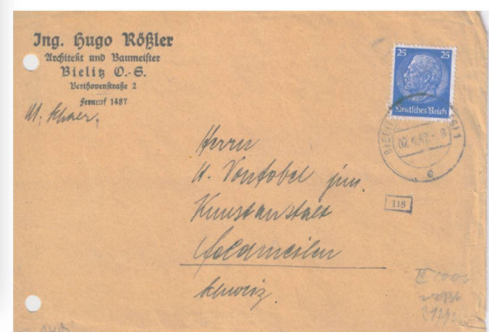 Ing. Hugo Rößler
Architekt und Baumeister
Bielitz O.-S.
Beethovenstraße 2
Fernruf 1487
25 25
Deutsches Reich
Herrn
A. Vontobel jun.
Kunstanstalt
Feldmeilen
Schweiz.
118